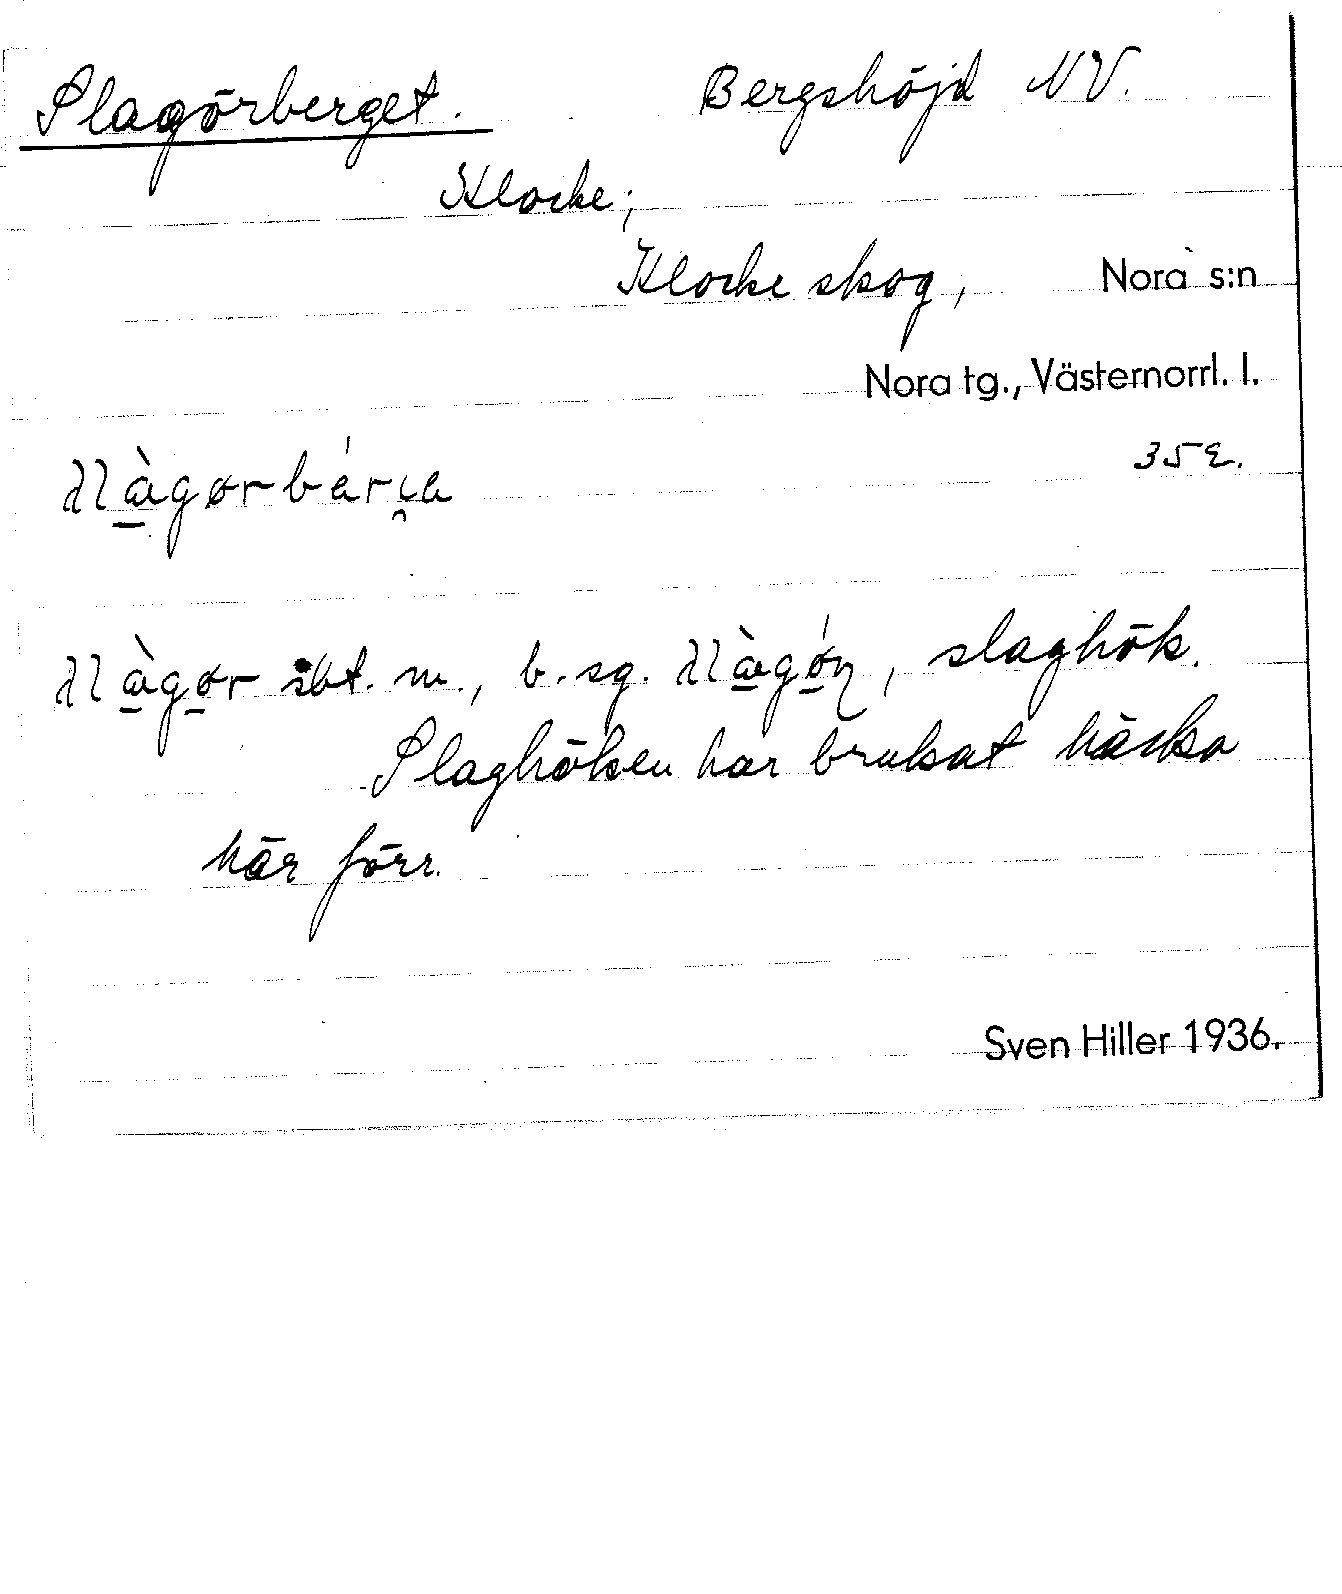 Slagörberget. Bergshöjd NV.
Klocke;
Klocke skog, Nora s:n
Nora tg., Västernorrl. l.
35 E.
sbt. m., b. sg. , slaghök.
Slaghöken har brukat häcka
här förr.
Sven Hiller 1936.